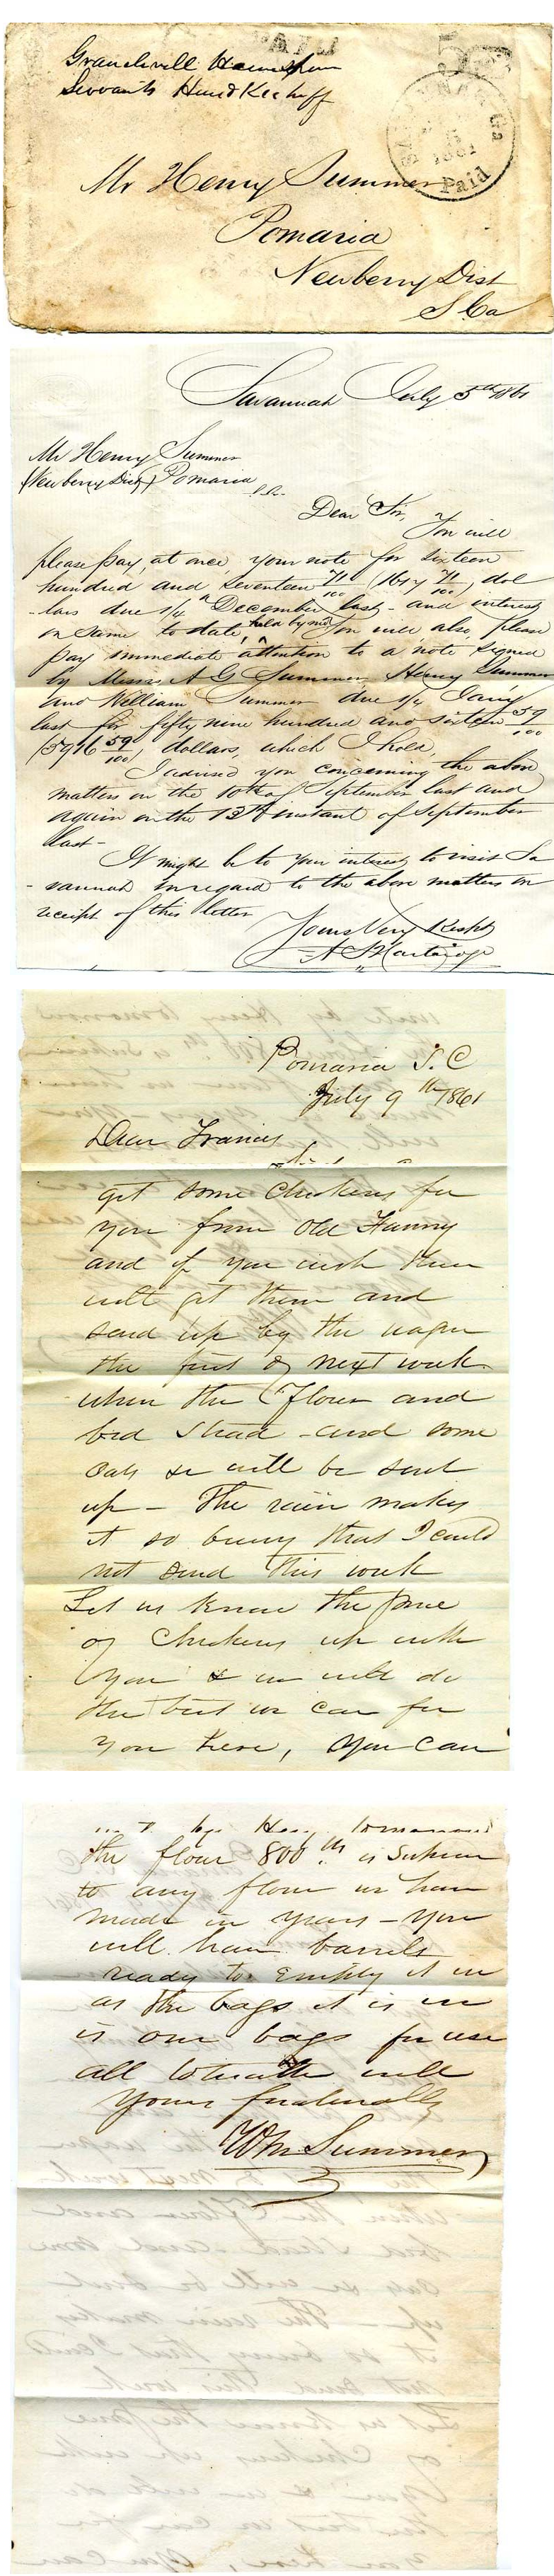 PAID
5
Graniteville
Servants Hand Kerchiff
1861
Paid
Mr Henry Summer
Pomaria
Newberry Dist
S Ca
Savannah July 5th 1861
Mr Henry Summer
(Newberry Dist) Pomaria
S.C.
Dear Sir,
You will
please pay, at once, your note for sixteen
hundred and seventeen 71/100 (1617 71/100) dol
-lars due 1/4 December last - and interest
on same to date, held by me, You will also, please
pay immediate attention to a note signed
by Messrs A G Summer Henry Summer
and William Summer due 1/4 Jany
last for fifty nine hundred and sixteen 59/100
(5916 59/100) dollars, which I hold,
I advised you concerning the above
matters on the 10th of September last and
again on the 13th instant of September
last -
It might be to your interest to visit Sa
- vannah in regard to the above matters on
receipt of this letter
Yours Very Respy
A S Hartridge
Pomaria S. C
July 9th 1861
Dear Francis
get some chickens for
you from Old Fanny
and if you wish them
will get them and
send up by the wagon
the first of next week
when the flour and
bed stead - and some
oats &c will be sent
up - The rain makes
it so busy that I could
not send this week
Let us know the price
of chickens up with
you & we will do
the best we can for
you here, You can
by Henry tomorrow
the flour 800 is superior
to any flour we have
made in years - you
will have barrels
ready to empty it in
as the bags it is in
is our bags for use
all together well
Yours fraternally
Wm Summer